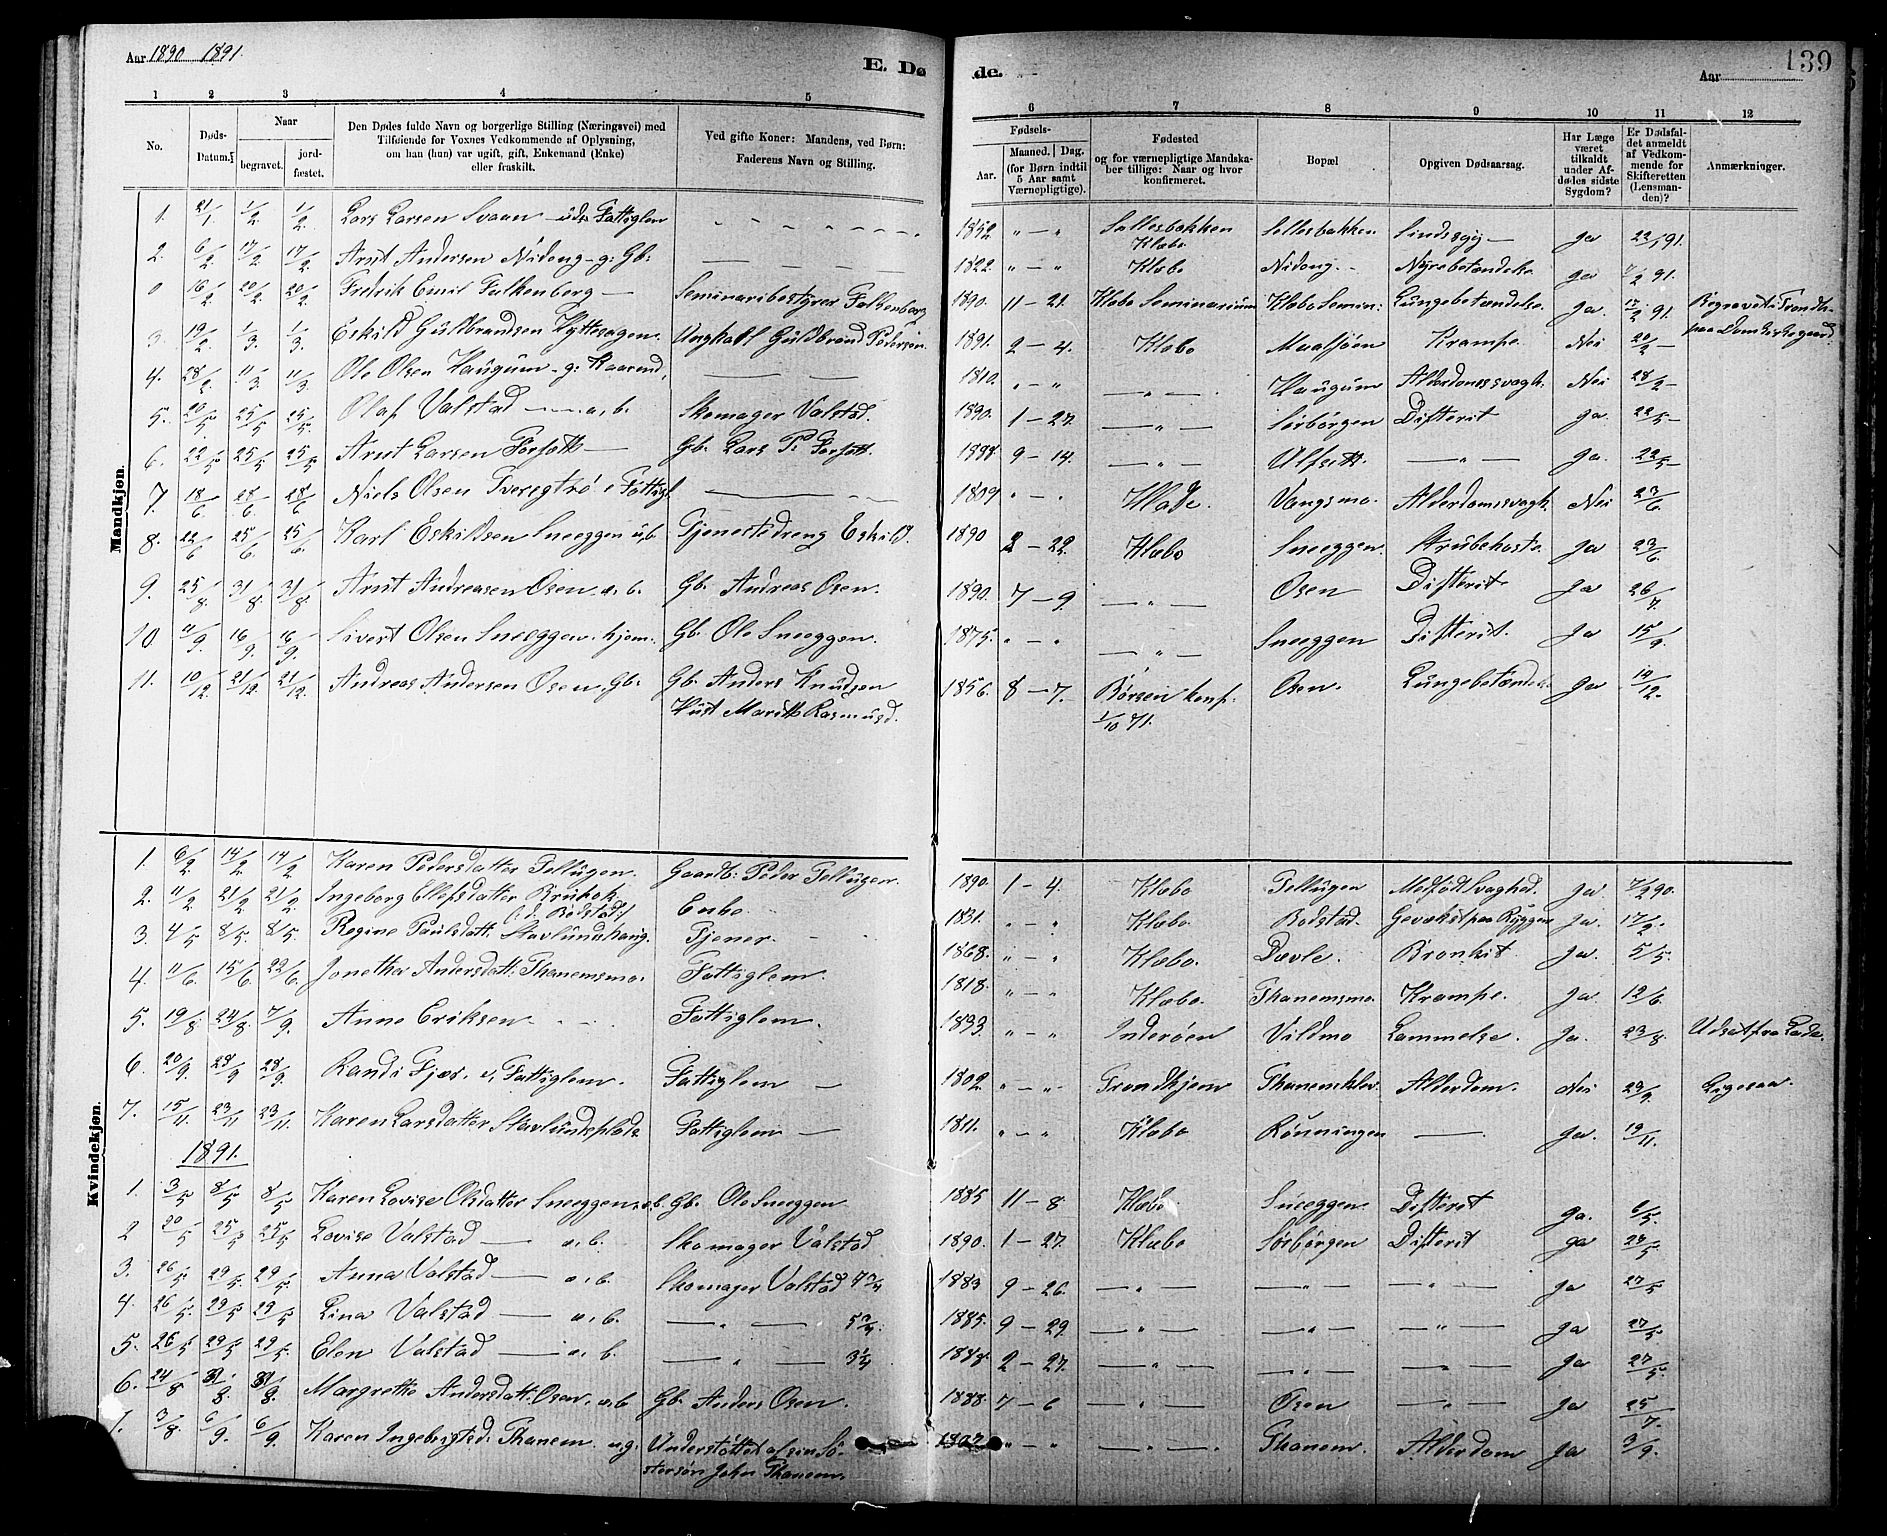 Aar 1890 1891.
E. Dø de.
Aar 139
1 2 3 4 5 6 7 8 9 10 11 12
No.
Døds-Datum.
Naar
begravet.
jord-fæstet.
Den Dødes fulde Navn og borgerlige Stilling (Næringsvei) med
Tilføiende for Voxnes Vedkommende af Oplysning,
om han (hun) var ugift, gift, Enkemand (Enke)
eller fraskilt.
Ved gifte Koner: Mandens, ved Børn:
Faderens Navn og Stilling.
Fødsels-
Aar.
Maaned. Dag.
(for Børn indtil
5 Aar samt
Værnepligtige).
Fødested
og for værnepligtige Mandska-
ber tillige: Naar og hvor
konfirmeret.
Bopæl
Opgiven Dødsaarsag.
Har Læge
været
tilkaldt
under Af-
dødes sidste
Sygdom?
Er Dødsfal-
det anmeldt
af Vedkom-
mende for
Skifteretten
(Lensman-
den)?
Anmærkninger.
Mandkjøn.
1. 21/1 1/2 1/2. Lars Larsen Svaan Fattiglem 1852 " — " Sellesbakken Klæbo Sellesbakken Sindssyg — Ja 22/1 91.
2. 6/2 17/2 17/2. Arnt Andersen Nideng - g: Gb: 1822. " — " Klæbo Nideng. Nyrebetændelse Ja 7/2 91.
0 16/2 20/2 20/2. Fredrik Emil Falkenberg — Seminaribestyrer Falkenberg 1890. 11 - 21. Klæbo Seminarium Klæbo Semin: Lungebetændelse. Ja. 17/2 91. Begravet i Trondh. paa Domkirkegaard.
3. 19/2 1/3 1/3. Eskild Guldbrandsen Hyttesagen. Ungkarl Guldbrand Pedersen 1891. 2 - 4. Klæbo Maalsjøen Krampe. Nei 20/2 —
4. 28/2. 11/3 11/3 Ole Olsen Haugum - g: Kaarmd, 1810. " — " — " — Haugum Alderdomssvagh. Nei 28/2 —
5. 20/5 25/5 25/5. Olaf Valstad —— u. b. Skomager Valstad. 1890. 1 - 27. — " — Sørbørgen Difterit Ja. 22/5 —
6. 22/5 25/5 25/5 Arnt Larsen Forsett — Gb. Lars P. Forsett. 1888. 9 - 14. — " — Ulfsett. — " — Ja. 22/5 —
7. 18/6 28/6 28/6 Niels Olsen Tveregtrø, Fattigl 1809 " - " Klæbo. Vangsmo. Alderdomssvagh. Nei 23/6.
8. 22/6 25/6 25/6. Karl Eskildsen Sneeggen u, b Tjenestedreng Eskild. 1890 2 - 22. Klæbo Sneeggen. Strubehoste. Ja 23/6.
9. 25/8. 31/8 31/8 Arnt Andreasen Osen u. b. Gb. Andreas Osen. 1890. 7 - 9. — " — Osen Difterit Ja 26/7.
10. 11/9. 16/9. 16/9. Sivert Olsen Sneeggen. hjem. Gb. Ole Sneeggen. 1875. " - " — " — Sneeggen Difterit. Ja 15/9.
11. 10/12. 21/12. 21/12. Andreas Andersen Osen, Gb. Gb. Anders Knudsen 1856. 8 - 7. Børsen konf. Osen. Lungebetændelse Ja 14/12.
Hust Marith Rasmusd. 1/10 71.
Kvindekjøn.
1. 6/2 14/2 14/2 Karen Pedersdatter Tellugen. Gaardb: Peder Tellugen. 1890. 1 - 4. Klæbo Tellugen Medfødt Svaghed. Ja. 7/2 90.
2. 11/2 21/2 21/2. Ingeborg Ellefsdatter Bostad. Enke 1831. " - " Klæbo Bodstad. Gevækst paa Ryggen Ja. 17/2.
3. 4/5 8/5. 8/5. Regine Paulsdatt. Stavlundshaug. Tjener. 1868. " - " Klæbo. Devle. Bronkit. Ja. 5/5.
4. 11/6. 15/6. 22/6. Jonetha Andersdatt. Thanemsmo. Fattiglem 1818. " - " Klæbo. Thanemsmo. Krampe. Ja. 12/6
5. 19/8 24/8. 7/9. Anne Eriksen Fattiglem. 1833. " - " Inderøen Vildmo Lammelse. Ja. 23/8. Udsat fra Lade.
6. 20/9. 28/9 28/9. Randi Fjær. Fattiglem. Fattiglem — 1802. " - " Trondhjem Thanemklev. Alderdom. Nei 23/9. Ligesaa.
7. 15/11. 23/11 23/11. Karen Larsdatter Stavlundsplads Fattiglem — 1811. " - " Klæbo Rønningen — Ja. 19/11.
1891.
1. 3/5 8/5 8/5 Karen Lovise Olsdatter Sneeggen u. b. Gb. Ole Sneeggen 1885 11 - 8 Klæbo Sneeggen. Difterit Ja. 6/5.
2 20/5 25/5 25/5 Lovise Valstad —— u. b. Skomager Valstad 1890. 1 - 27. Klæbo Sørbørgen Difterit Ja 24/5
3. 26/5 29/5 29/5. Anna Valstad —— u, b. Skomager Valstad 1883 9 - 26. — " — — " — Ja 27/5
4. 26/5. 29/5 29/5 Lina Valstad —— u, b. — " — 1885. 9 - 29. — " — — " — — " — Ja 27/5
5. 26/5 29/5 29/5. Elen Valstad —— u. b. — " — 1888. 2 - 27. — " — — " — — " — Ja 27/5.
6. 24/8 31/8. 31/8. Margrethe Andersdatt. Osen, u. b Gb. Anders Osen. 1888. 7 - 6 — " — Osen — " — Ja 25/7.
7. 3/8. 6/9. 6/9. Karen Ingebrigtsd. Thanem. u. g. Understøttet af sin Sø- 1807. " - " — " — Thanem. Alderdom Ja 3/9.
stersøn John Thanem.